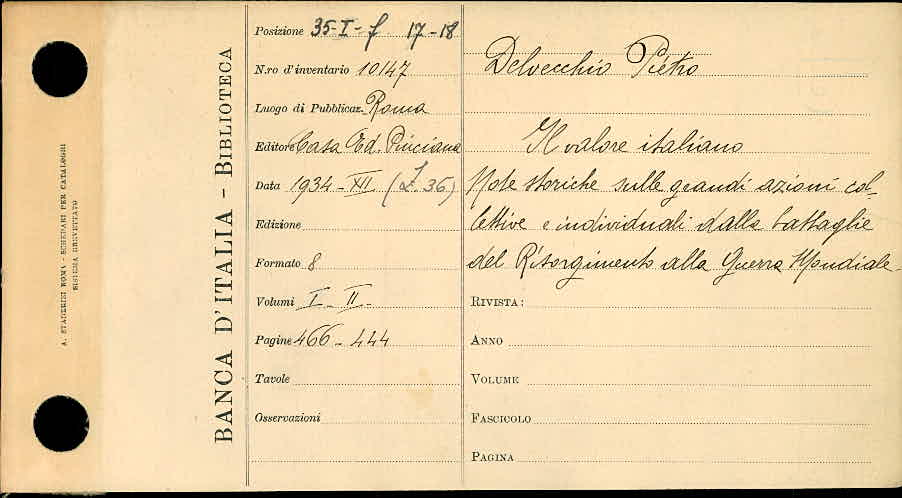 A. STADERINI ROMA - SCHEDARI PER CATALOGHI
SISTEMA BREVETTATO
BANCA D'ITALIA - BIBLIOTECA
Posizione 35-I-f 17-18
N.ro d'inventario 10147
Luogo di Pubblicaz. Roma
Editore Casa Ed. Pinciana
Data 1934-XII (L. 36)
Edizione
Formato 8
Volumi I-II-
Pagine 466-444
Tavole
Osservazioni
Delvecchio Pietro
Il valore italiano
Note storiche sulle grandi azioni col-
lettive e individuali dalle battaglie
del Risorgimento alla Guerra Mondiale-
RIVISTA:
ANNO
VOLUME
FASCICOLO
PAGINA